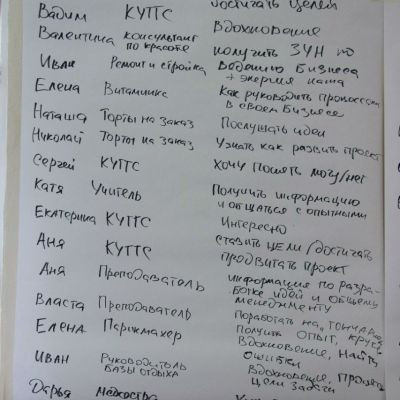 Вадим КУПТС достигать целей
Вдохновение
Валентина консультант по красоте получить ЗУН по
Иван Ремонт и стройка Ведению бизнеса
+ энергия
Елена Витаминкс Как руководить процессом
в своем бизнесе
Наташа Торты на заказ Послушать идеи
Николай Торты на заказ Узнать как развить проект
Сергей КУПТС Хочу понять могу/нет
Катя Учитель Получить информацию
и общаться с опытными
Екатерина КУПТС Интересно
Аня КУПТС ставить цели/достигать
продвигать проект
Аня Преподаватель информация по разра-
ботке идей и общему
менеджменту
Власта Преподаватель Поработать на
Елена Парикмахер Получить опыт,
Вдохновение, Найти
ошибки
Иван Руководитель базы отдыха Вдохновение,
цели задачи
Дарья Медсестра